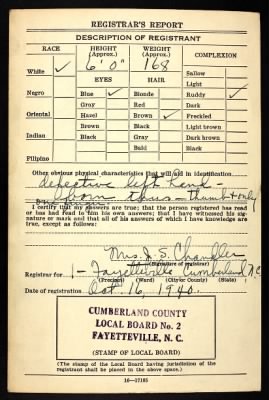 REGISTRAR'S REPORT
DESCRIPTION OF REGISTRANT
RACE HEIGHT (Approx.) WEIGHT (Approx.) COMPLEXION
6' 0" 168 Sallow
White ✓ Light
EYES HAIR Ruddy ✓
Negro Blue ✓ Blonde Dark
Gray Red Freckled
Oriental Hazel Brown ✓ Light brown
Brown Black Dark brown
Indian Black Gray Black
Bald
Filipino
Other obvious physical characteristics that will aid in identification
defective left hand -
born thus - thumb & only
one finger
I certify that my answers are true; that the person registered has read
or has had read to him his own answers; that I have witnessed his sig-
nature or mark and that all of his answers of which I have knowledge are
true, except as follows:
Mrs. J. S. Chandler
(Signature of registrar)
Registrar for 1 - Fayetteville Cumberland N.C.
(Precinct) (Ward) (City or County) (State)
Date of registration Oct. 16, 1940.
CUMBERLAND COUNTY
LOCAL BOARD No. 2
FAYETTEVILLE, N. C.
(STAMP OF LOCAL BOARD)
(The stamp of the Local Board having jurisdiction of the
registrant shall be placed in the above space.)
16-17105